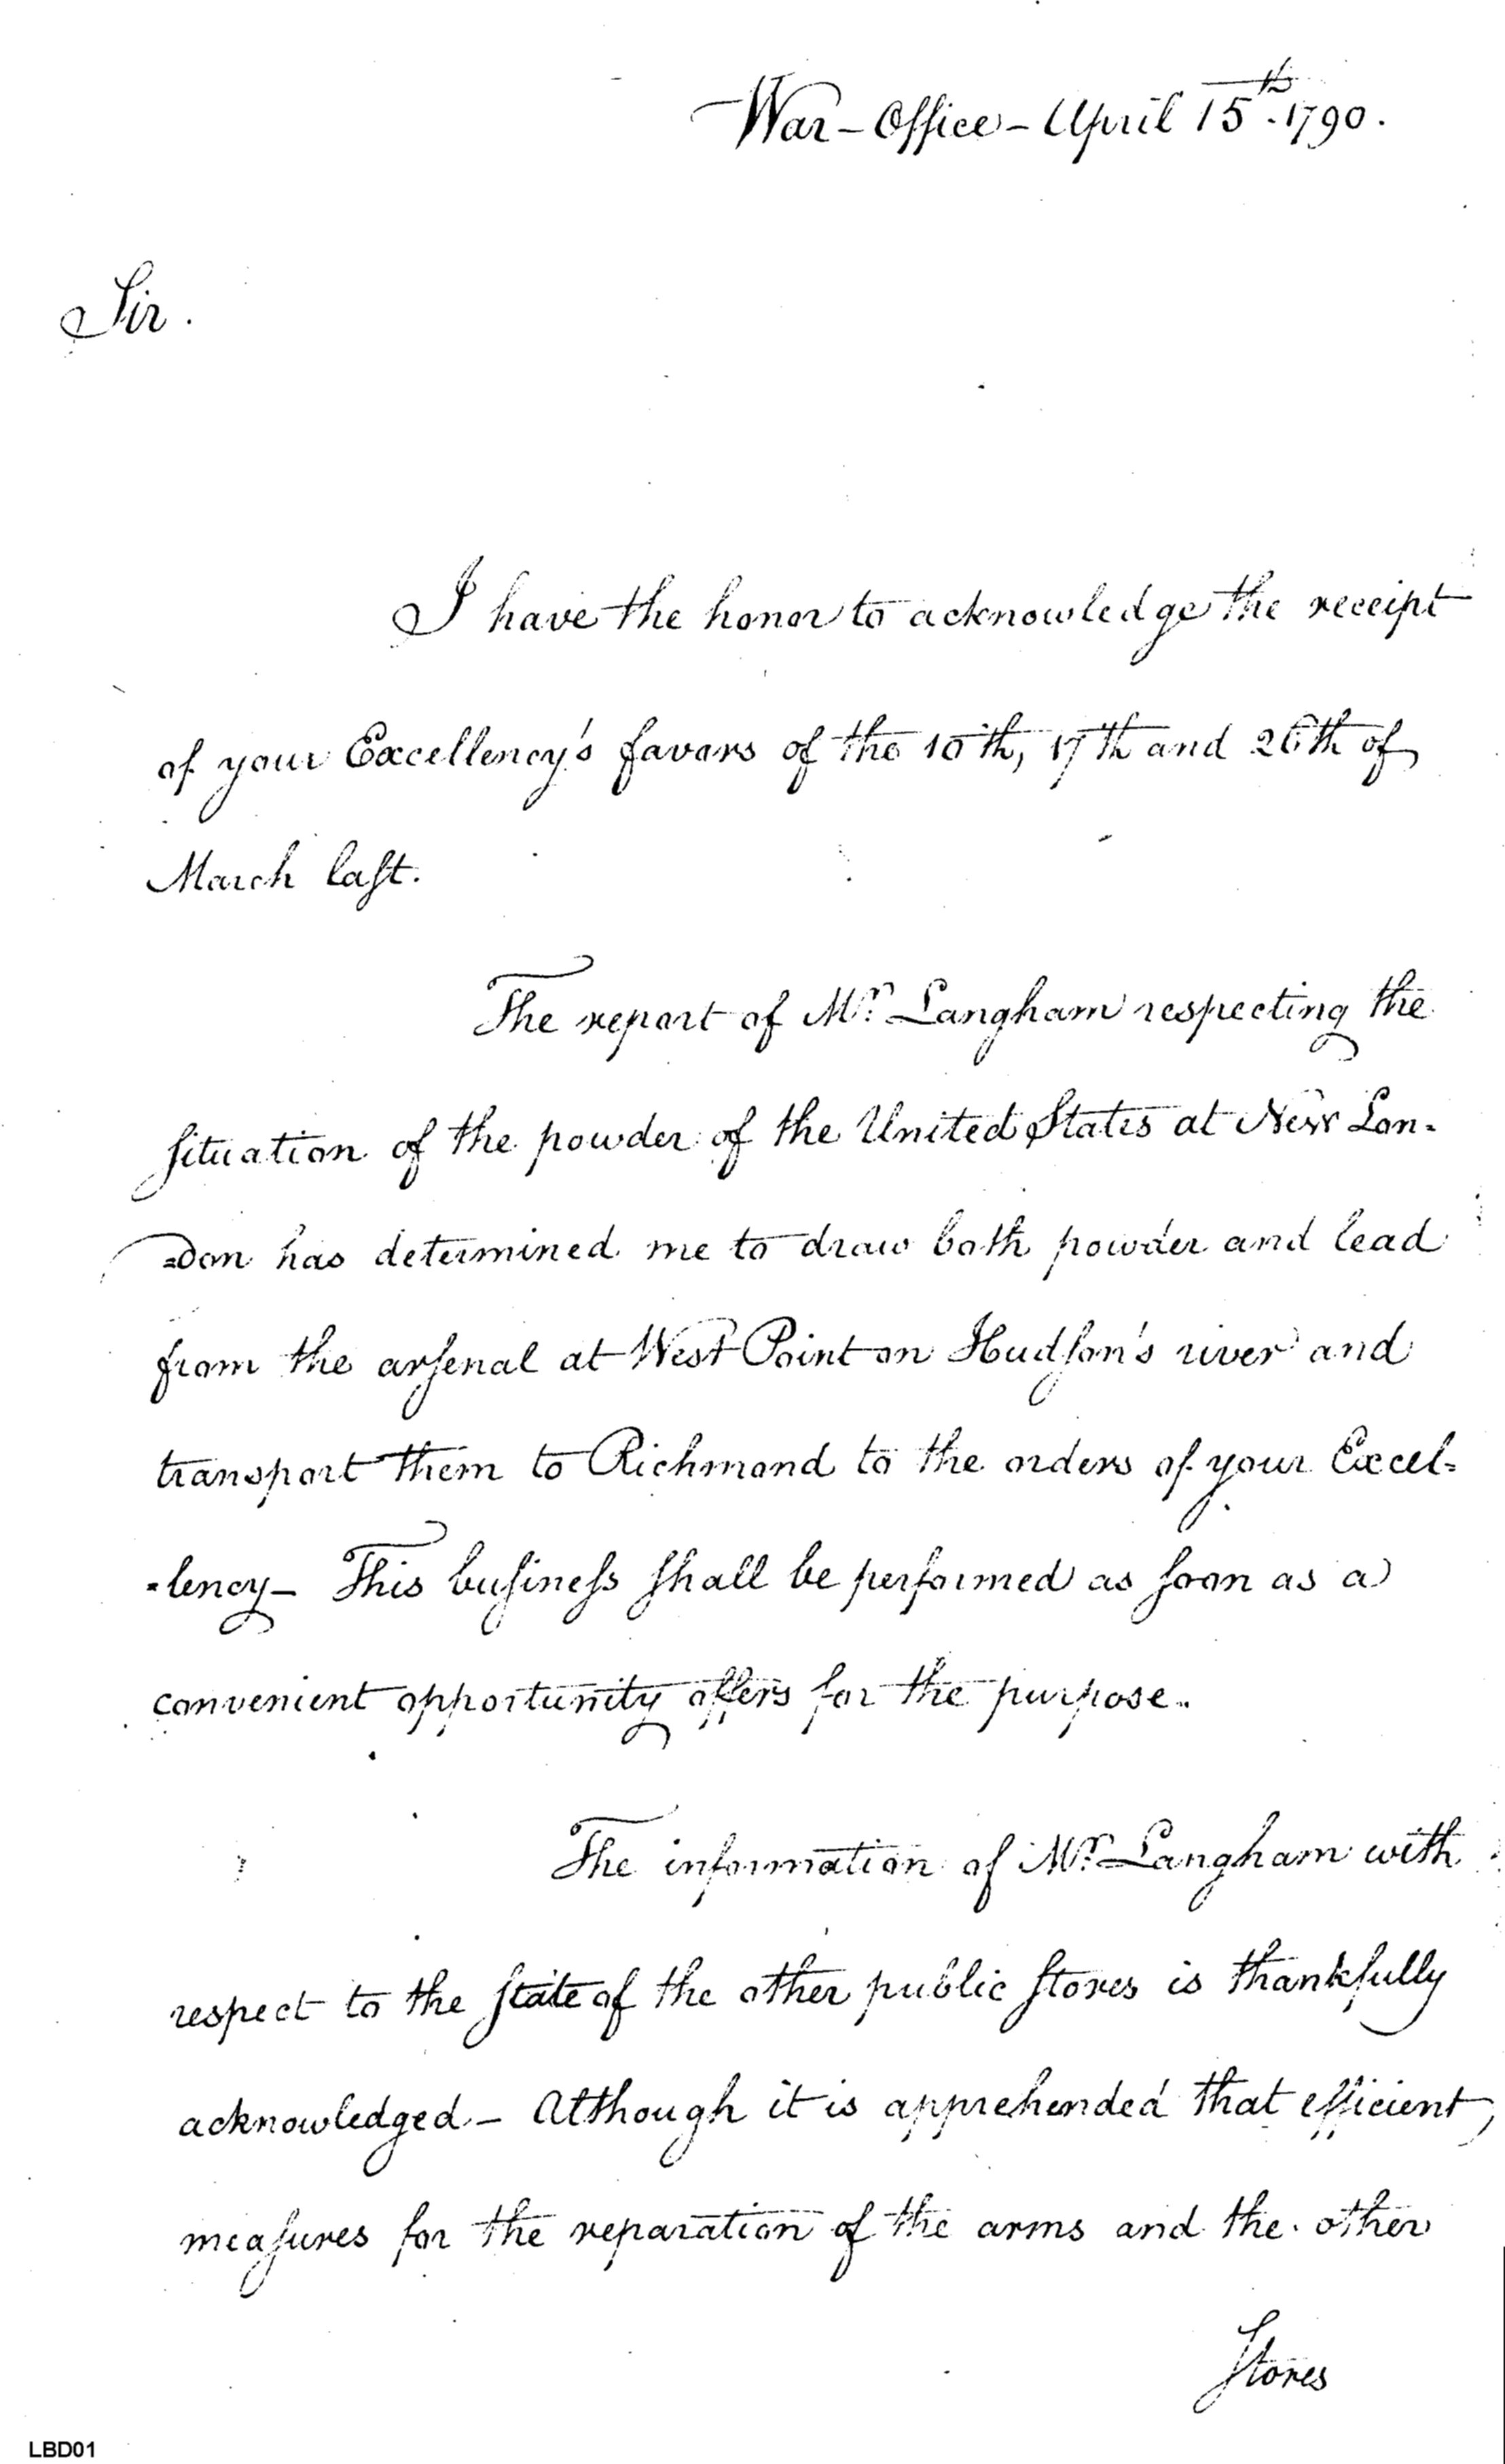 War-Office-April 15th.1790.
Sir.
I have the honor to acknowledge the receipt
of your Excellency's favors of the 10th, 17th and 26th of
March last.
The report of Mr. Langham respecting the
situation of the powder of the United States at New Lon-
=don has determined me to draw both powder and lead
from the arsenal at West Point on Hudson's river and
transport them to Richmond to the orders of your Excel-
-lency- This business shall be performed as soon as a
convenient opportunity offers for the purpose.
The information of Mr. Langham with
respect to the state of the other public stores is thankfully
acknowledged- Although it is apprehended that efficient,
measures for the reparation of the arms and the other
Stores
LBD01